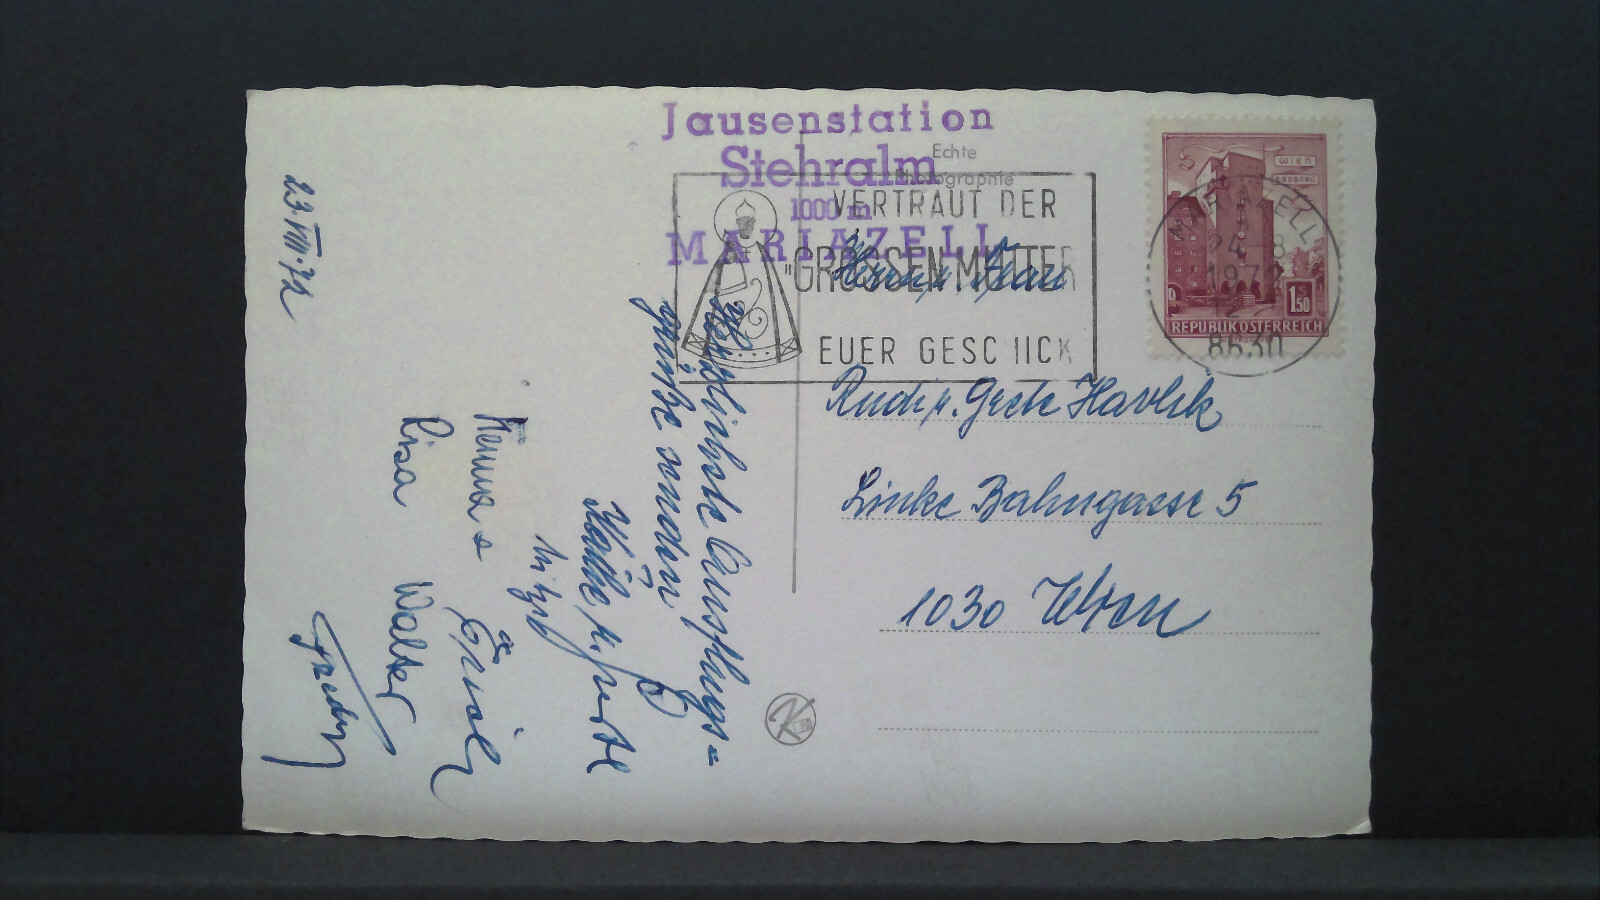 Jausenstation
Stehralm
1000 m
MARIAZELL
Echte
Photographie
VERTRAUT DER
"GROSSEN MUTTER
EUER GESC IICK
WIEN
ERDBERG
1.50
REPUBLIK ÖSTERREICH
MARIAZELL
24. 8
1972
8630
23.VIII.72
Herrn u. Frau
Rudi u. Grete Havlik
Linke Bahngasse 5
1030 Wien
herzlichste Ausflugs=
grüße senden
Lisa Walter